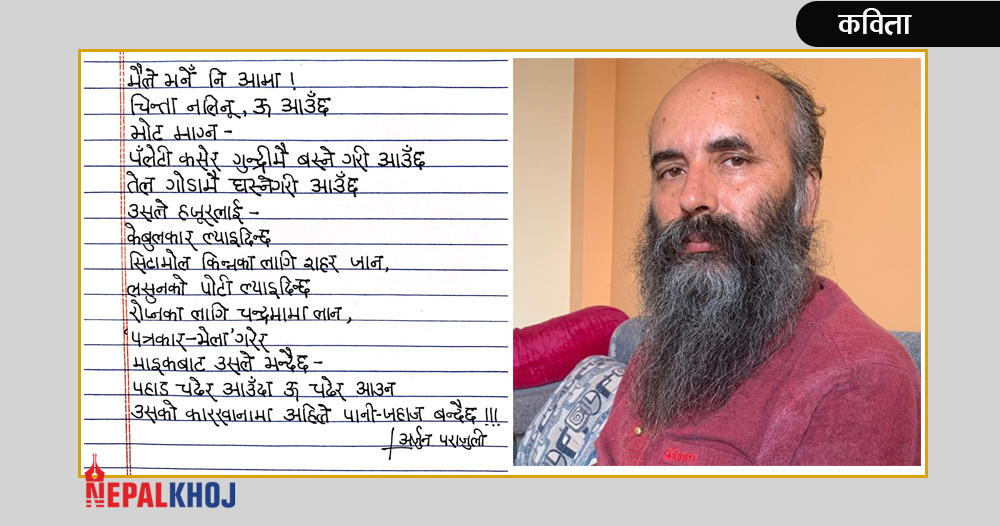 कविता
मैले भनेँ नि आमा !
चिन्ता नलिनू, ऊ आउँछ
भोट माग्न -
पँलेटी कसेर गुन्द्रीमै बस्ने गरी आउँछ
तेल गोडामै घस्नेगरी आउँछ
उसले हजूरलाई -
केबुलकार ल्याइदिन्छ
सिटामोल किन्नका लागि शहर जान,
लसुनको पोटी ल्याइदिन्छ
रोप्नका लागि चन्द्रमामा लान,
'पत्रकार-मेला' गरेर
माइकबाट उसले भन्दैछ -
पहाड चढेर आउँदा ऊ चढेर आउन
उसको कारखानामा अहिले पानी-जहाज बन्दैछ !!!
अर्जुन पराजुली
NEPALKHOJ